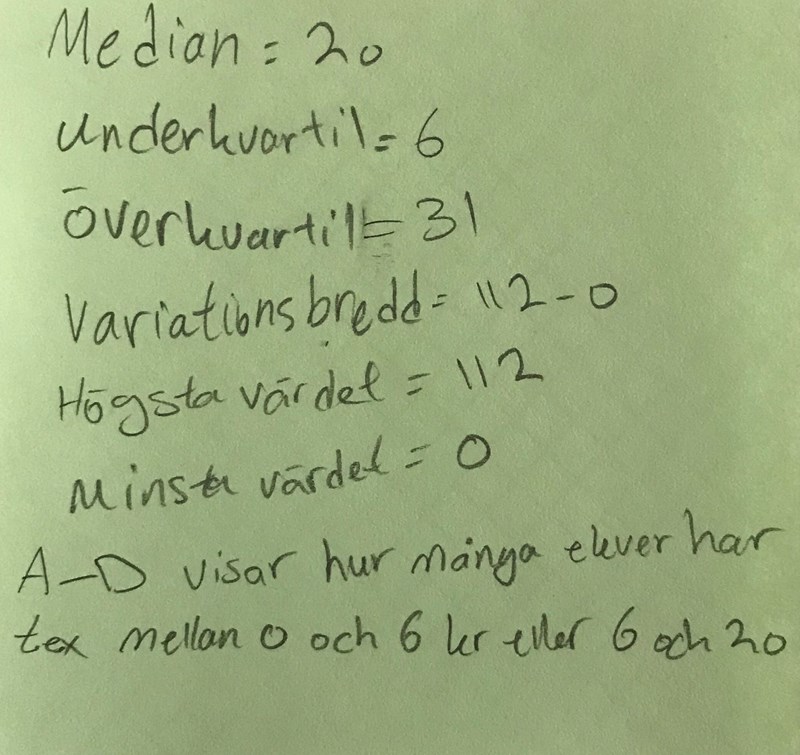 Median = 20
Underkvartil = 6
Överkvartil = 31
Variationsbredd = 112 - 0
Högsta värdet = 112
Minsta värdet = 0
A-D visar hur många elever har
tex mellan 0 och 6 kr eller 6 och 20